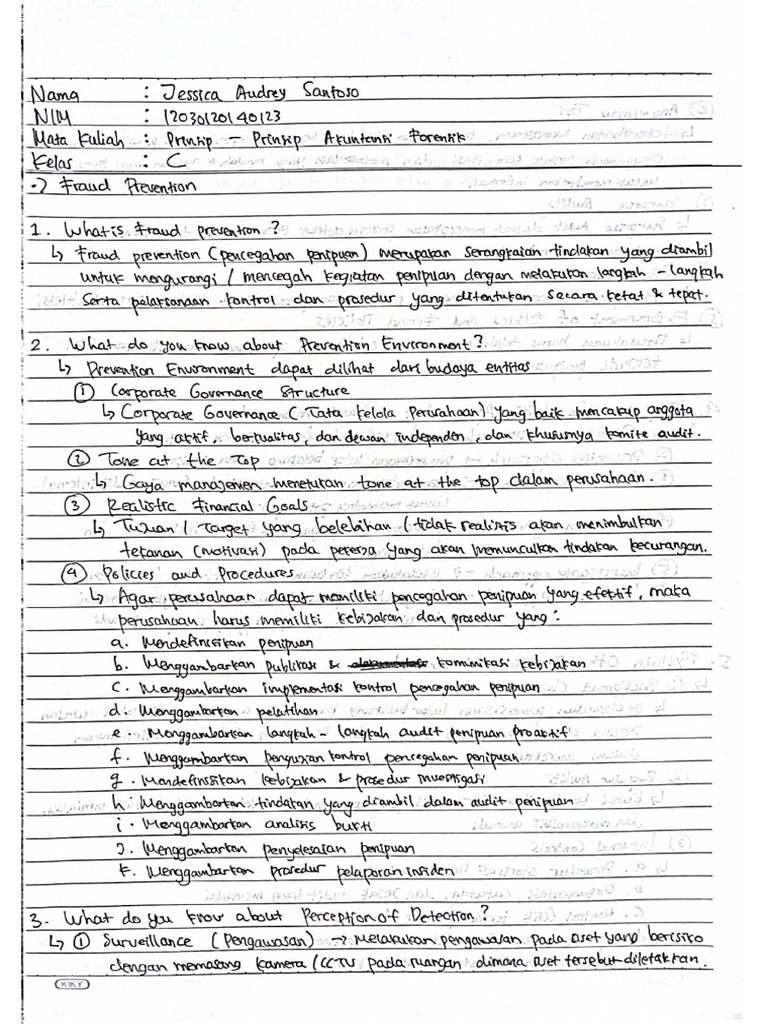 Nama : Jessica Audrey Santoso
NIM : 12030120140123
Mata Kuliah : Prinsip - Prinsip Akuntansi Forensik
Kelas : C
-> Fraud Prevention
1. What is Fraud prevention?
↳ Fraud prevention (pencegahan penipuan) merupakan serangkaian tindakan yang diambil
untuk mengurangi / mencegah kegiatan penipuan dengan melakukan langkah - langkah
serta pelaksanaan kontrol dan prosedur yang ditentukan secara ketat & tepat.
2. What do you know about Prevention Environment?
↳ Prevention Environment dapat dilihat dari budaya entitas
① Corporate Governance Structure
↳ Corporate Governance (Tata kelola Perusahaan) yang baik mencakup anggota
yang aktif, berkualitas, dan dewan independen, dan khususnya komite audit.
② Tone at the Top
↳ Gaya manajemen menetukan tone at the top dalam perusahaan.
③ Realistic Financial Goals
↳ Tujuan / Target yang belebihan (tidak realisis akan menimbulkan
tekanan (motivasi) pada pekerja yang akan memunculkan tindakan kecurangan.
④ Policies and Procedures
↳ Agar perusahaan dapat memiliki pencegahan penipuan yang efektif, maka
perusahaan harus memiliki kebijakan dan prosedur yang :
a. Mendefinisikan penipuan
b. Menggambarkan publikasi & komunikasi kebijakan
c. Menggambarkan implementasi kontrol pencegahan penipuan
d. Menggambarkan pelatihan
e. Menggambarkan langkah - langkah audit penipuan proaktif
f. Menggambarkan pengujian kontrol pencegahan penipuan
g. Mendefinisikan kebijakan & prosedur investigasi
h. Menggambarkan tindakan yang diambil dalam audit penipuan
i. Menggambarkan analisis bukti
j. Menggambarkan penyelesaian penipuan
k. Menggambarkan prosedur pelaporan insiden
3. What do you know about Perception of Detection?
↳ ① Surveillance (Pengawasan) -> Melakukan pengawasan pada aset yang berisiko
dengan memasang kamera / CCTV pada ruangan dimana aset tersebut diletakkan.
KIKY